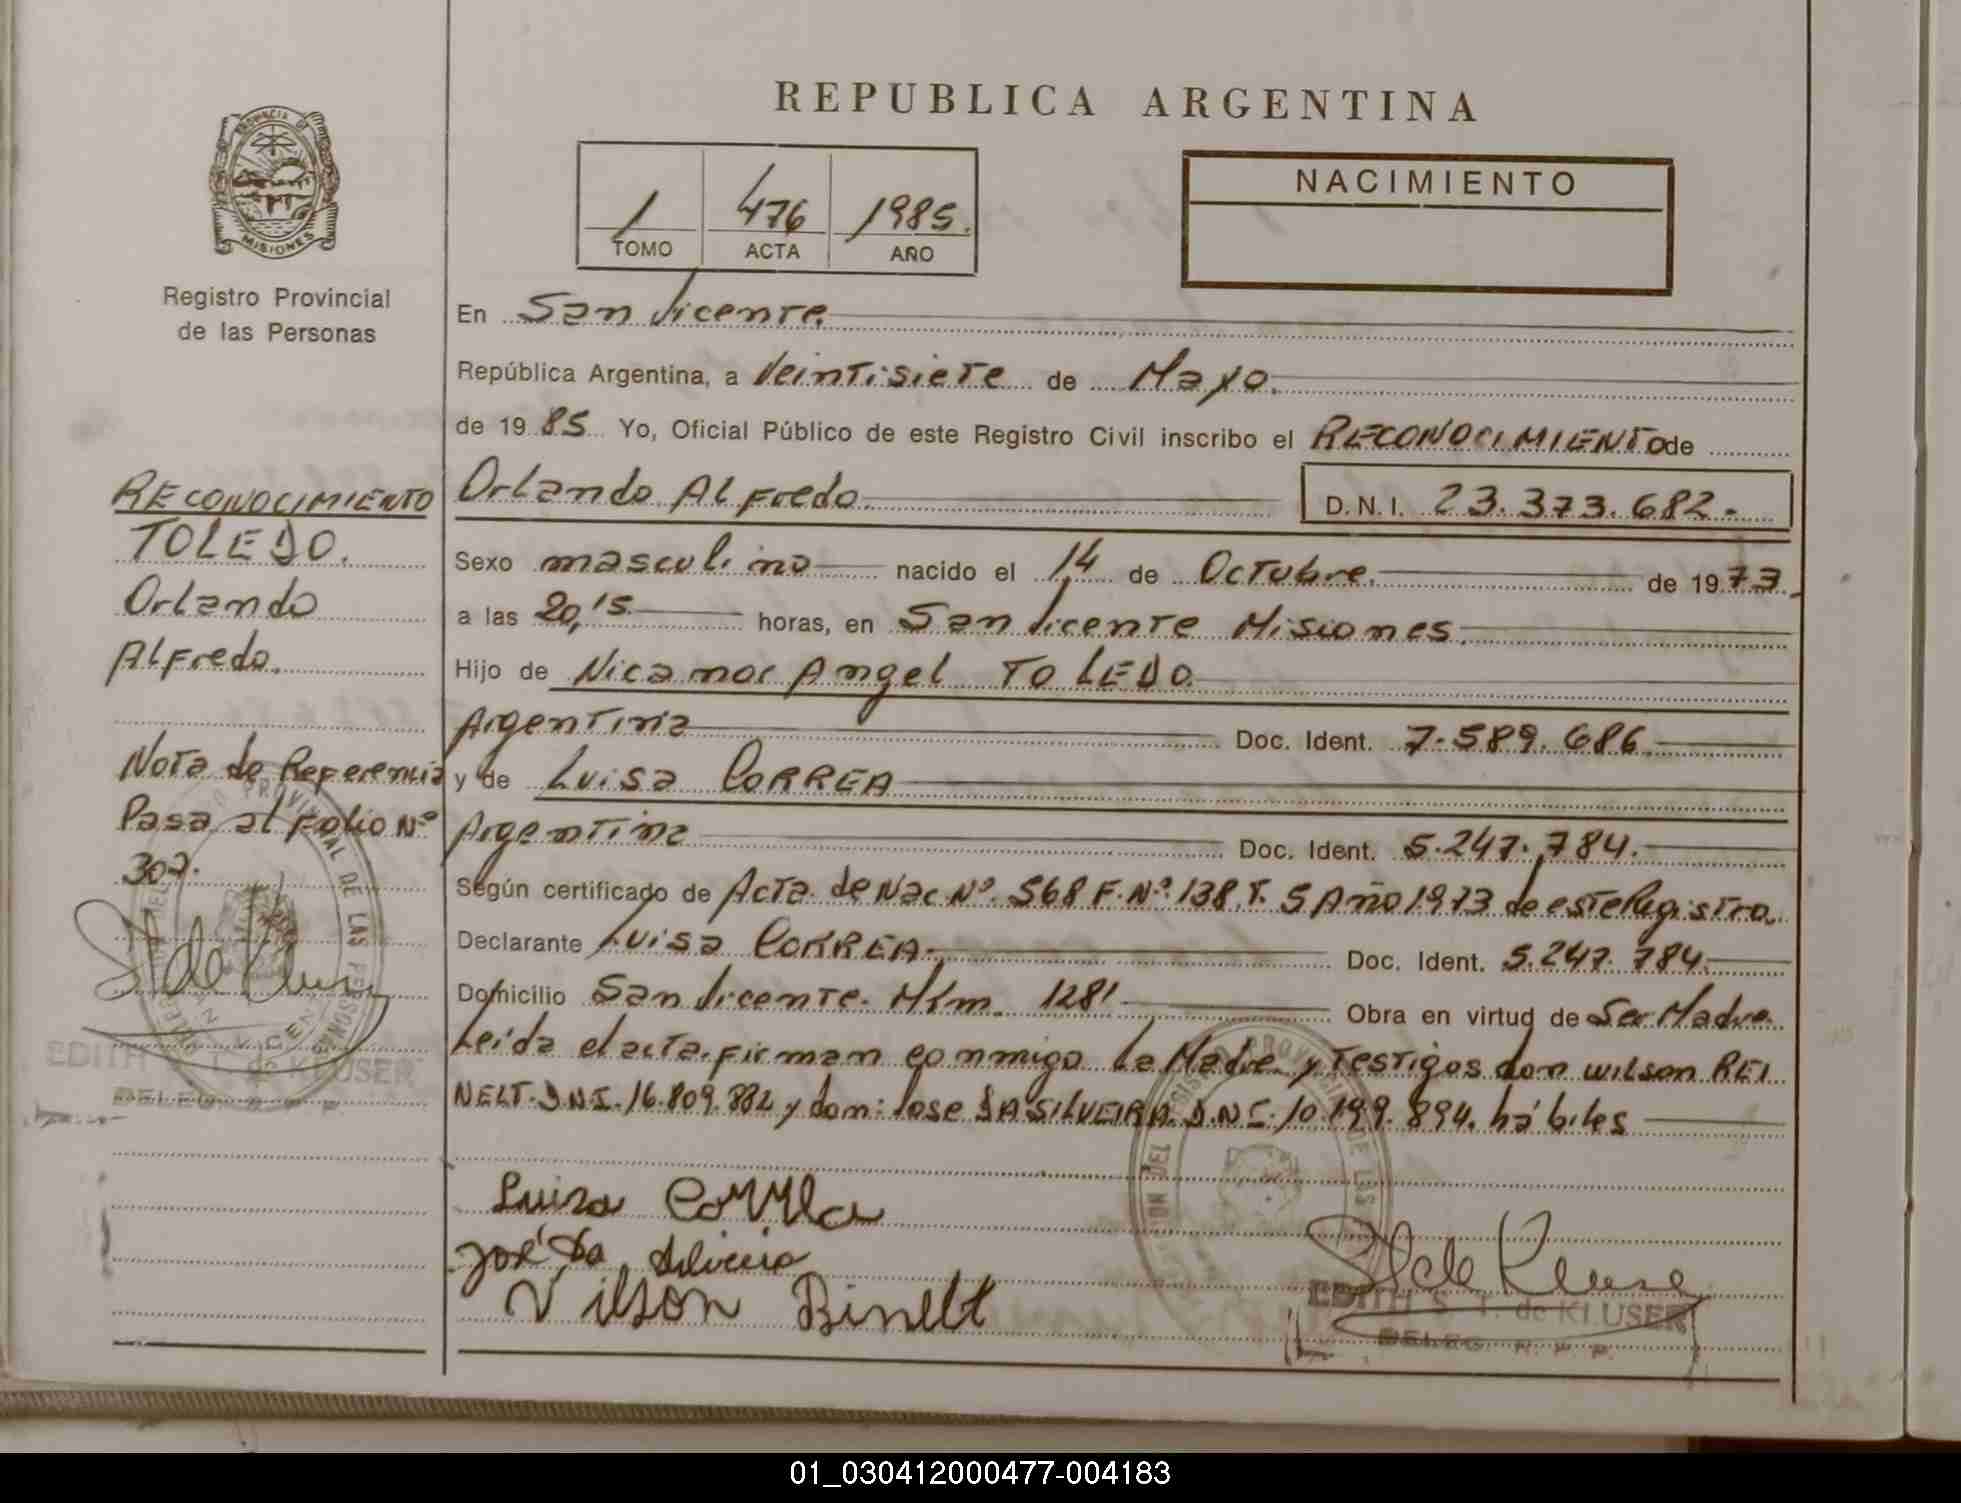 REPUBLICA ARGENTINA
PROVINCIA DE
MISIONES
Registro Provincial
de las Personas
1 476 1985.
TOMO ACTA AÑO
NACIMIENTO
En San Vicente.
República Argentina, a Veintisiete de Mayo.
de 19 85 Yo, Oficial Público de este Registro Civil inscribo el RECONOCIMIENTO de
Orlando Alfredo. D.N.I. 23.373.682.-
Sexo masculino nacido el 14 de Octubre. de 19 73.
a las 20,15 horas, en San Vicente Misiones.
Hijo de Nicanor Angel TOLEDO.
Argentina Doc. Ident. 7.589.686.
y de Luisa CORREA
Argentina Doc. Ident. 5.247.784.
Según certificado de Acta de Nac Nº. 568 F. Nº. 138 T. 5 Año 1973 de este Registro.
Declarante Luisa CORREA. Doc. Ident. 5.247.784.
Domicilio San Vicente. Km. 1281 Obra en virtud de Ser Madre.
Leida el acta. firman conmigo la Madre y Testigos don Wilson REI
NELT. D.N.I. 16.809.882 y don: Jose DA SILVEIRA. D.N.I. 10.199.894. hábiles
Luiza Corrla
José Da Silveira
Vilson Binelt
EDITH S. T. de KLUSER
RECONOCIMIENTO
TOLEDO.
Orlando
Alfredo.
Nota de Referencia
Pasa al Folio Nº
307.
EDITH S. T. de KLUSER
01_030412000477-004183